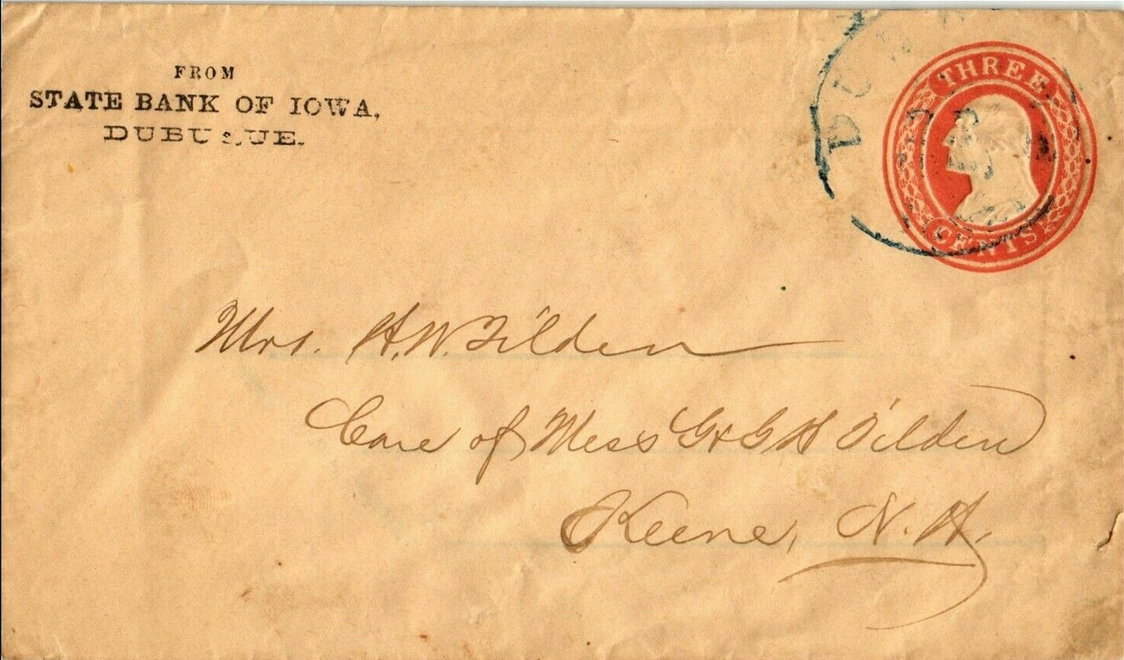 FROM
STATE BANK OF IOWA,
DUBUQUE.
THREE
CENTS
Mrs. H.W. Tilden
Care of Mess G & G H Tilden
Keene, N.H.